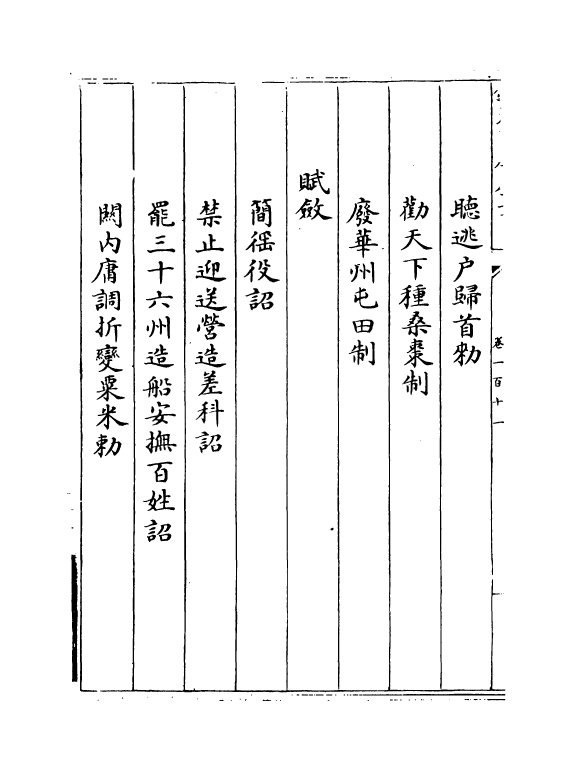 卷一百十一
聽逃户歸首勑
勸天下種桑棗制
廢華州屯田制
賦斂
簡徭役詔
禁止迎送營造差科詔
罷三十六州造船安撫百姓詔
闗内庸調折變粟米勅